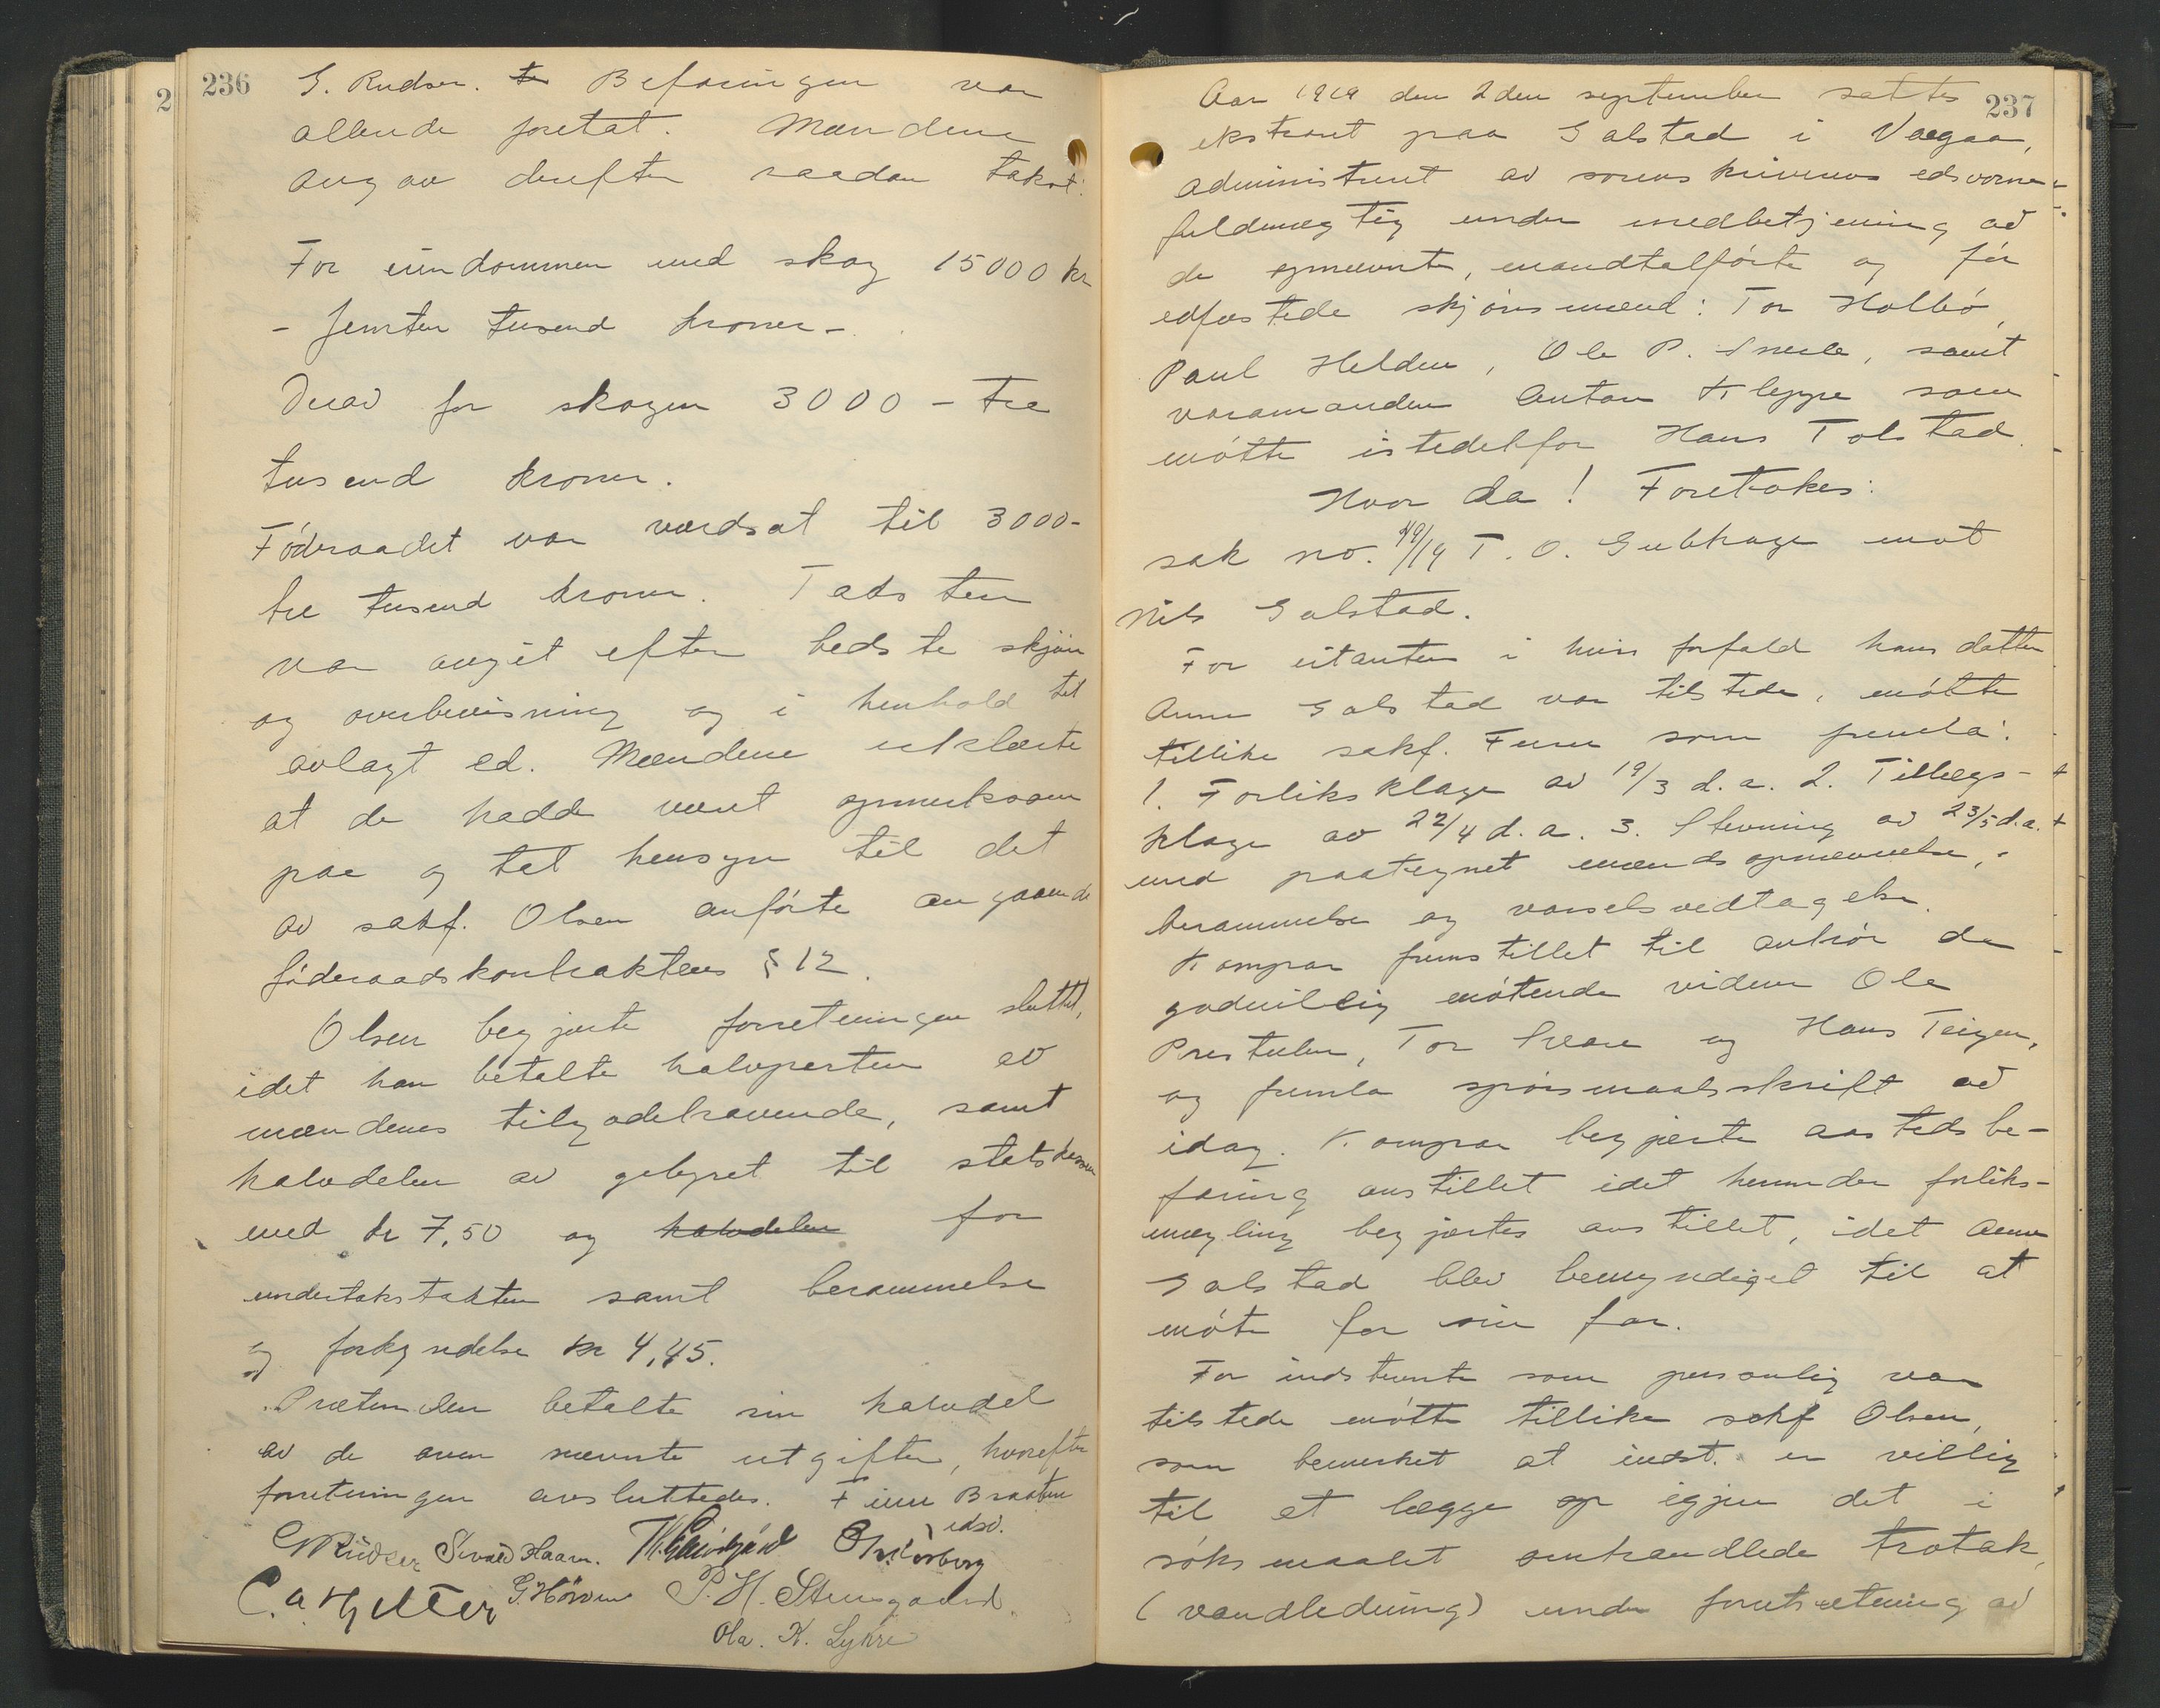 236
G. Rudser. Befaringen var
allerede foretat. Mændene
avgav derefter saadan takst:
For eiendommen med skog 15000 kr
- femten tusend kroner -
Derav for skogen 3000 - tre
tusend kroner.
Föderaadet var værdsat til 3000-
tre tusend kroner. Taksten
var avgit efter bedste skjön
og overbevisning og i henhold til
avlagt ed. Mændene erklærte
at de hadde været opmerksom
paa og tat hensyn til det
av sakf. Olsen anförte angaaende
föderaadskontraktens § 12.
Olsen begjærte forretningen sluttet,
idet han betalte halvparten av
mændenes tilgodehavende, samt
halvdelen av gebyret til statskassen
med kr 7,50 og halvdelen for
undertakstakten samt berammelse
og forkyndelse kr 4,45.
Prætenden betalte sin halvdel
av de oven nævnte utgifter, hvorefter
forretningen avsluttedes. Finn Braaten
edsv.
G Rudser Sivald Haavr.
C. A. Hytter G. Horven P. H. Steinsgaard
Ola. K. Lykre
237
Aar 1919 den 2den september sattes
ekstraret paa Galstad i Vaagaa,
administreret av sorenskriverens edsvorne
fuldmægtig under medbetjening av
de opnævnte, mandtalförte og för
edfæstede skjönsmænd: Tor Holbö,
Paul Helden, Ole P. Snerle, samt
varamanden Anton Kleppe som
mötte istedetfor Hans Tolstad.
Hvor da! Foretokes:
sak no. 49/19 T. O. Gubhage mot
Nils Galstad.
For citanten i hvis forfald hans datter
Anne Galstad var tilstede, mötte
tillike sakf. Furu som fremla:
1. Forliksklage av 19/3 d. a. 2. Tillægs-
klage av 22/4 d. a. 3. Stevning av 23/5 d.a.
med paategnet mændsopnævnelse,
berammelse og varselsvedtagelse.
Kompar. fremstillet til avhör de
godvillig mötende vidner Ole
Prestulen, Tor Svare og Hans Teigen,
og fremla spörsmaalsskrift av
idag. Kompar. begjærte aastedsbe-
faring anstillet idet herunder forliks-
mægling begjærtes anstillet, idet Anne
Galstad blev bemyndiget til at
möte for sin far.
For indstevnte som personlig var
tilstede mötte tillike sakf Olsen,
som bemerket at indst. er villig
til at lægge op igjen det i
söksmaalet omhandlede tratak,
(vandledning) under forutsætning av